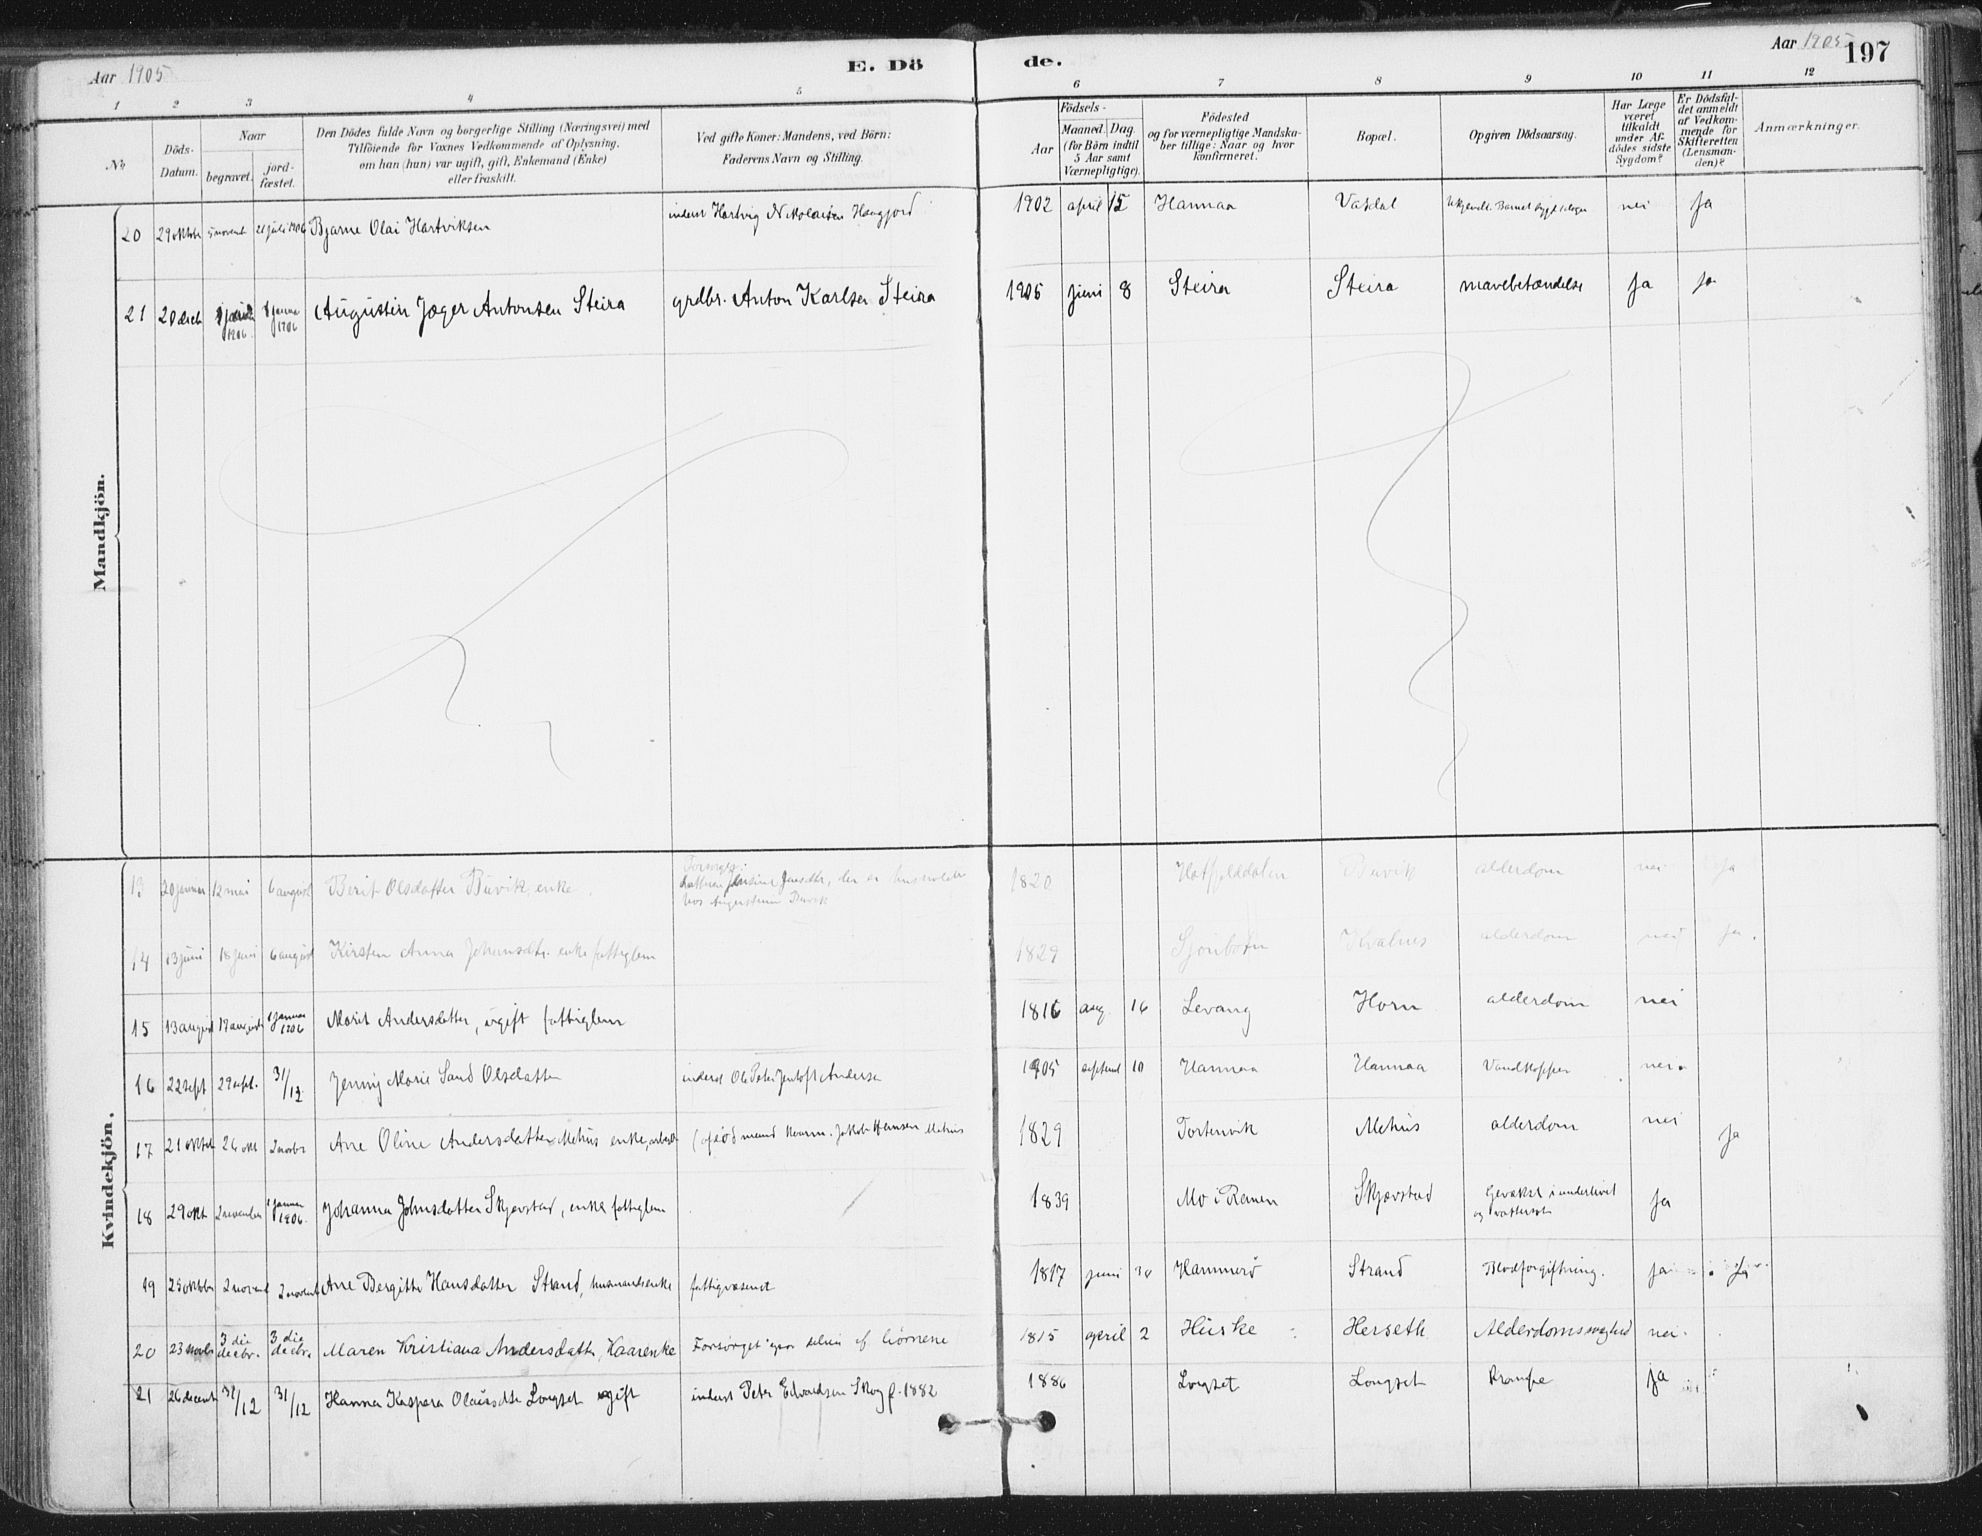 Aar 1905
E. Dö
de.
Aar 1905
197
1 2 3 4 5 6 7 8 9 10 11 12
No
Döds-
Datum.
Naar
begravet.
jord-
fæstet.
Den Dödes fulde Navn og borgerlige Stilling (Næringsvei) med
Tilföiende for Voxnes Vedkommende af Oplysning,
om han (hun) var ugift, gift, Enkemand (Enke)
eller fraskilt.
Ved gifte Koner: Mandens, ved Börn:
Faderens Navn og Stilling.
Födsels-
Aar
Maaned. Dag.
(for Börn indtil
5 Aar samt
Værnepligtige).
Födested
og for værnepligtige Mandska-
ber tillige: Naar og hvor
konfirmeret.
Bopæl.
Opgiven Dödsaarsag.
Har Læge
været
tilkaldt
under Af-
dödes sidste
Sygdom?
Er Dödsfal-
det anmeldt
af Vedkom-
mende for
Skifteretten
(Lensman-
den)?
Anmærkninger.
Mandkjön.
20 29 oktober 5 novemb 21 juli 1906 Bjarne Olai Hartviksen inderst Hartvig Nikolaisen 1902 april 15 Hannaa Vasdal nei Ja
21 20 decb 1 januar 1906 1 januar 1906 Augustin Jæger Antonsen Steira grdbr. Anton Karlsen Steira 1905 juni 8 Steira Steira mavebetændelse Ja Ja
Kvindekjön.
13 20 januar 12 mai 6 august Berit Olsdatter Buvik, enke.
hos Buvik 1820 Hatfjelddalen Buvik alderdom nei Ja
14 13 juni 18 juni 6 august Kirsten Anna Johansdtr. enke fattiglem 1829 Kvalnes alderdom nei Ja.
15 13 august 19 august 1 januar 1906 Marit Andersdatter, ugift fattiglem 1816 aug. 16 Levang Horn alderdom nei
16 22 sept 29 sept. 31/12 Jenny Marie Sand Olsdatter inderst Ole Peter Jentoft Andersen 1905 septemb 10 Hannaa Hannaa Vandkopper nei.
17 21 oktob 26 okt 2 novbr Ane Oline Andersdatter Methus enke, Jakob Hansen Methus 1829 Tortenvik Methus alderdom nei Ja
18 29 okt 2 november 1 januar 1906. Johanna Johnsdatter Skjævstad, enke fattiglem 1839 Mo i Ranen Skjævstad Gevækst i underlivet
og vattersot Ja
19 25 oktober 2 novemb 2 novemb Ane Bergitte Hansdatter Strand, husmandsenke fattigvæsenet 1817 juni 30 Hammerö Strand Blodforgiftning. Ja Ja
20 23 novbr 3die decbr. 3die decbr. Maren Kristiana Andersdatter, Kaarenke Forsörget af börnene 1815 april 2 Huske Herseth Alderdomssvaghed nei.
21 26 decemb 31/12 31/12 Hanna Kaspara Olausdtr Longset ugift inderst Peter Edvardsen Skog f. 1882 1886 Longset Longset Krampe Ja